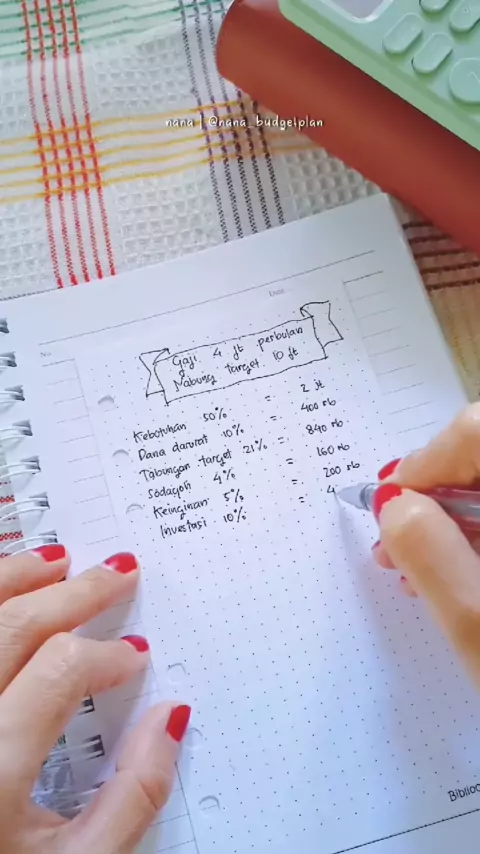 nana | @nana_budgetplan
No
Date
Gaji 4 jt perbulan
Nabung target 10 jt
Kebutuhan 50% = 2 jt
Dana darurat 10% = 400 rb
Tabungan target 21% = 840 rb
Sodaqoh 4% = 160 rb
Keinginan 5% = 200 rb
Investasi 10% = 4